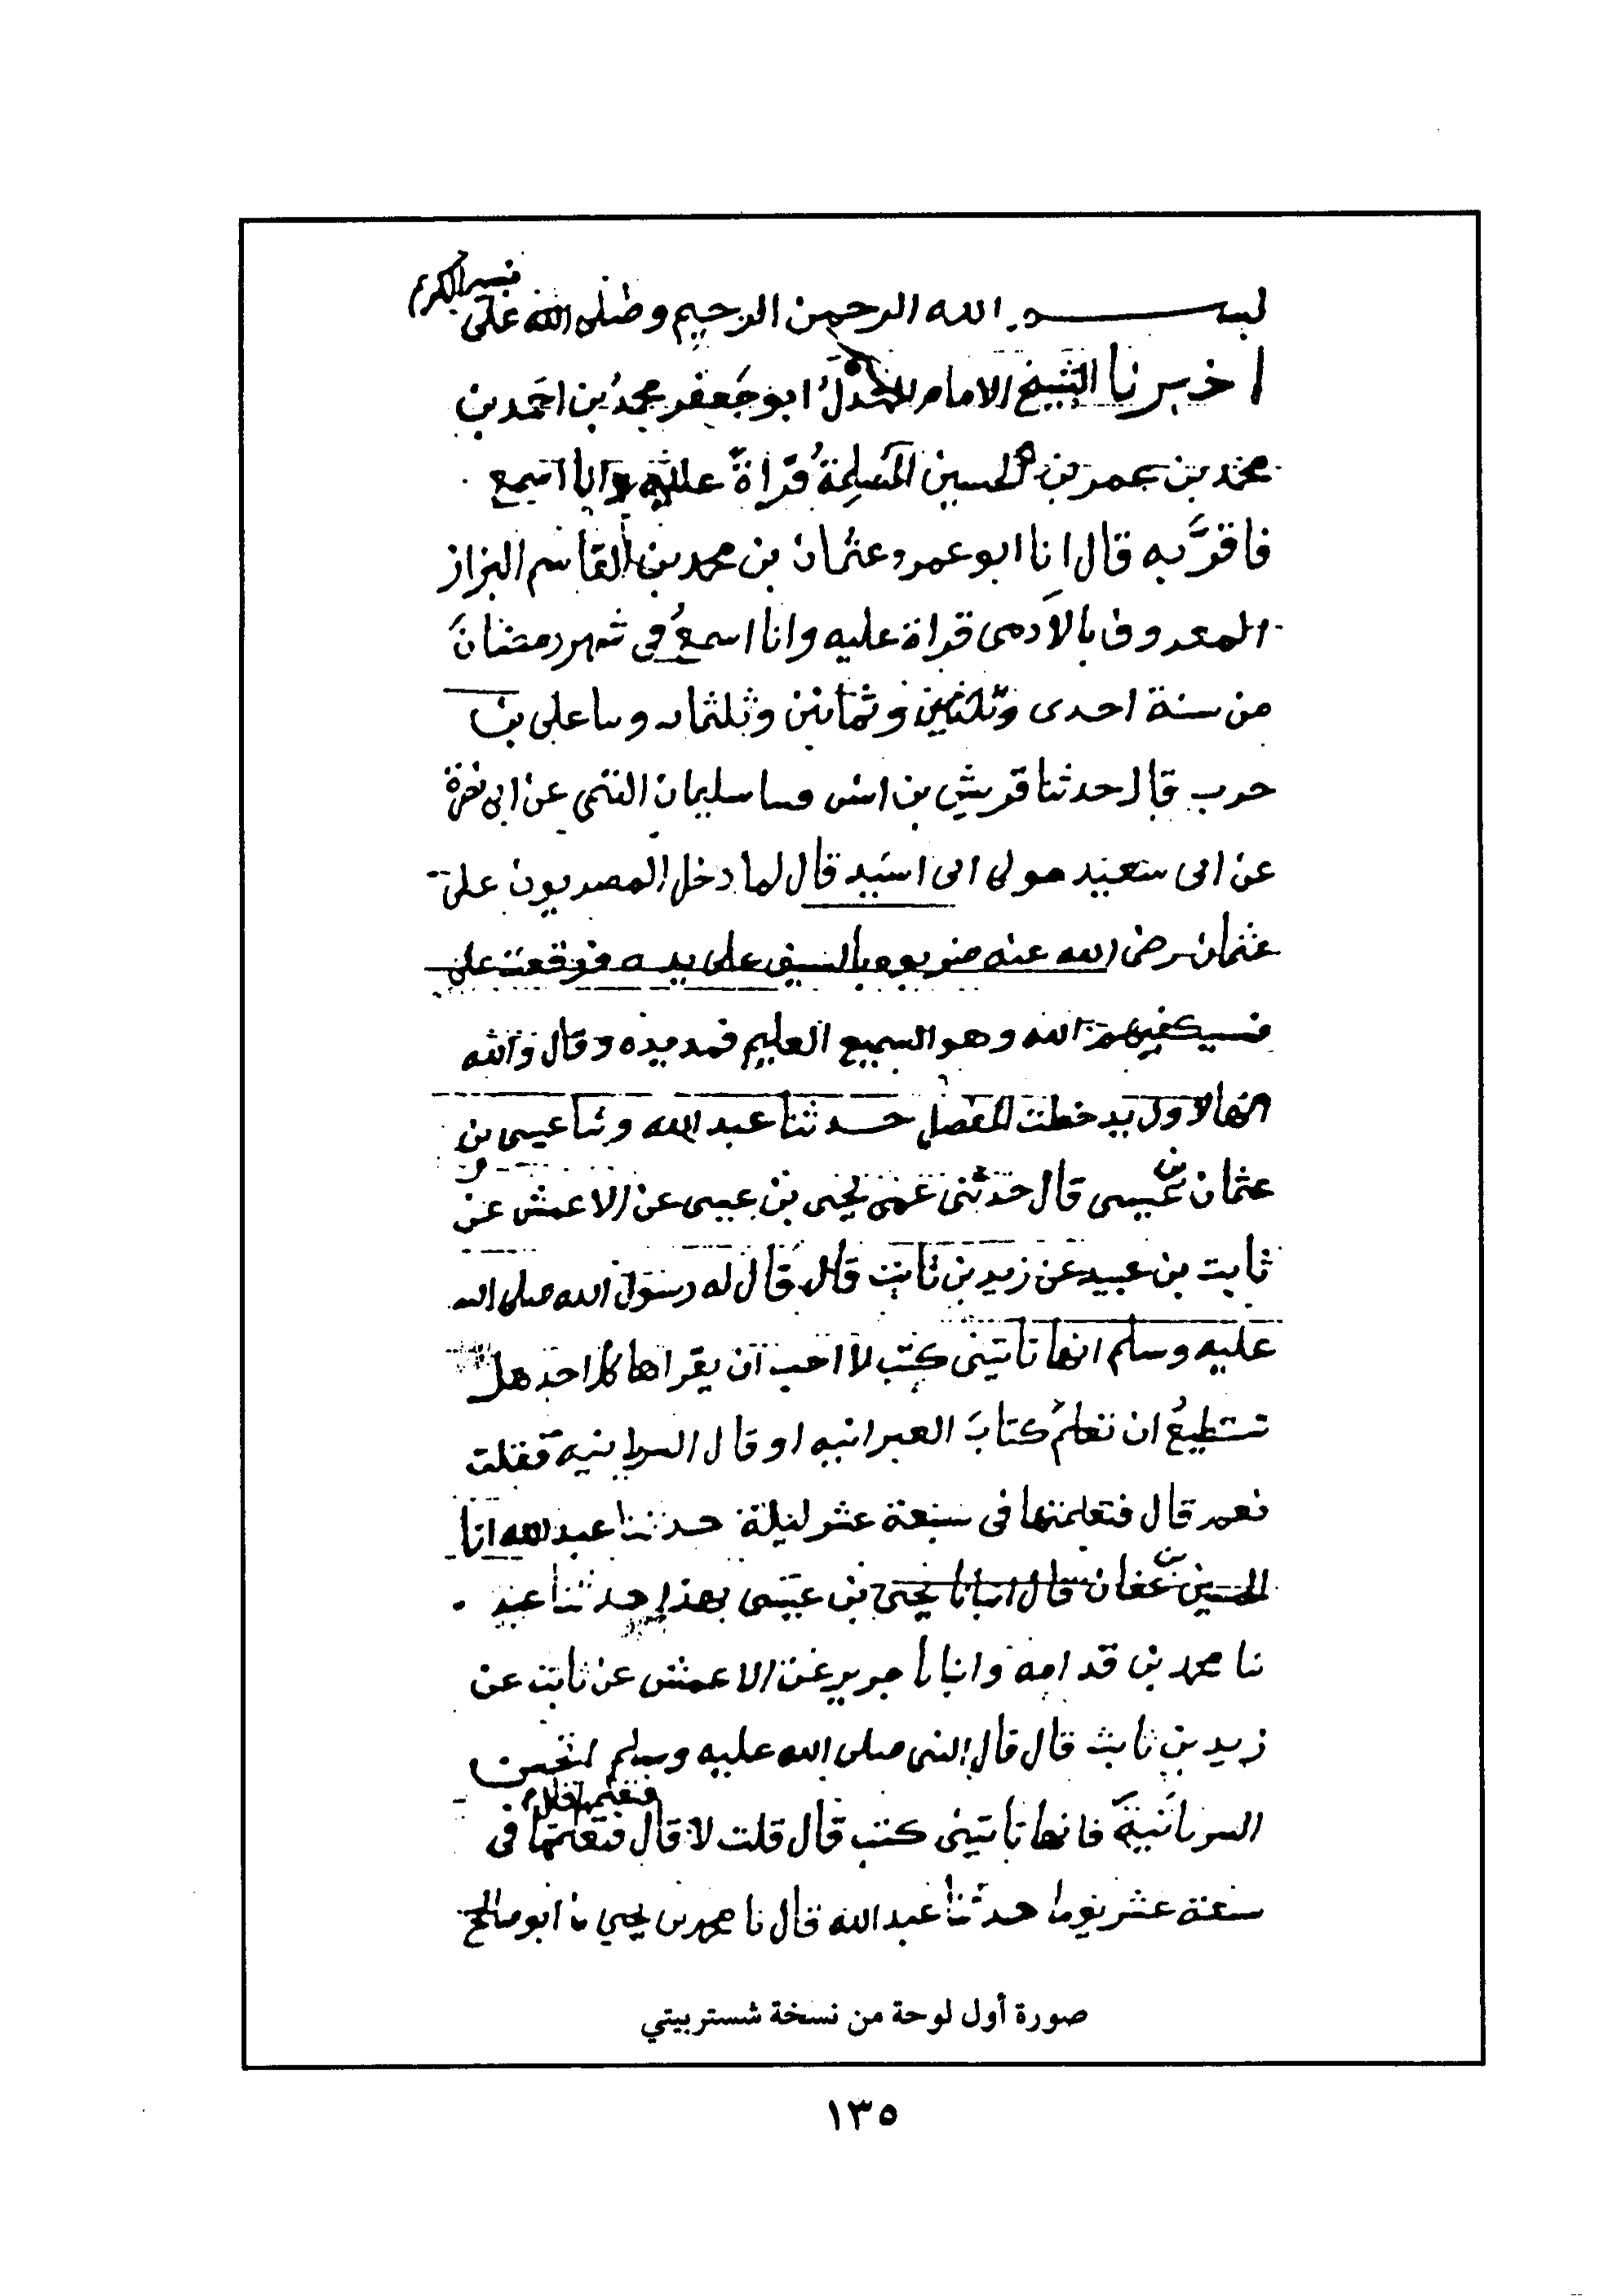 بسم الله الرحمن الرحيم وصلى الله على نبيه الكريم
اخبرنا الشيخ الامام المعدل ابو جعفر محمد بن احمد بن
محمد بن عمر بن الحسين المسلمة قراة عليه وانا اسمع
فاقر به قال انا ابو عمرو عثمان بن محمد بن القاسم البزاز
المعروف بالادمى قراة عليه وانا اسمع فى شهر رمضان
من سنة احدى وثمانين وثلثمايه ونا على بن
حرب قال حدثنا قريش بن انس ونا سليمان التيمى عن ابى نضرة
عن ابى سعيد مولى ابى اسيد قال لما دخل المصريون على
عثمان رضى الله عنه ضربوه بالسيف على يده فوقعت على
فسيكفيكهم الله وهو السميع العليم فمد يده وقال والله
انها لاول يد خطت المفصل حدثنا عبد الله ونا عيسى بن
عثمان بن عيسى قال حدثنى عمى يحيى بن عيسى عن الاعمش عن
ثابت بن عبيد عن زيد بن ثابت قال قال له رسول الله صلى الله
عليه وسلم انها تاتينى كتب لا احب ان يقراها كل احد هل
تستطيع ان تعلم كتاب العبرانيه او قال السريانيه فقلت
نعم قال فتعلمتها فى سبعة عشر ليلة حدثنا عبد الله انا
الحسين بن عفان قال انبانا يحيى بن عيسى بهذا حدثنا عبد
نا محمد بن قدامه وانبانا جرير عن الاعمش عن ثابت عن
زيد بن ثابت قال قال النبى صلى الله عليه وسلم اتحسن
السريانية فانها تاتينى كتب قال قلت لا قال فتعلمها قال فتعلمتها فى
سبعة عشر يوما حدثنا عبد الله قال نا محمد بن يحيى نا ابو صالح
صورة أول لوحة من نسخة شستربيتي
١٣٥